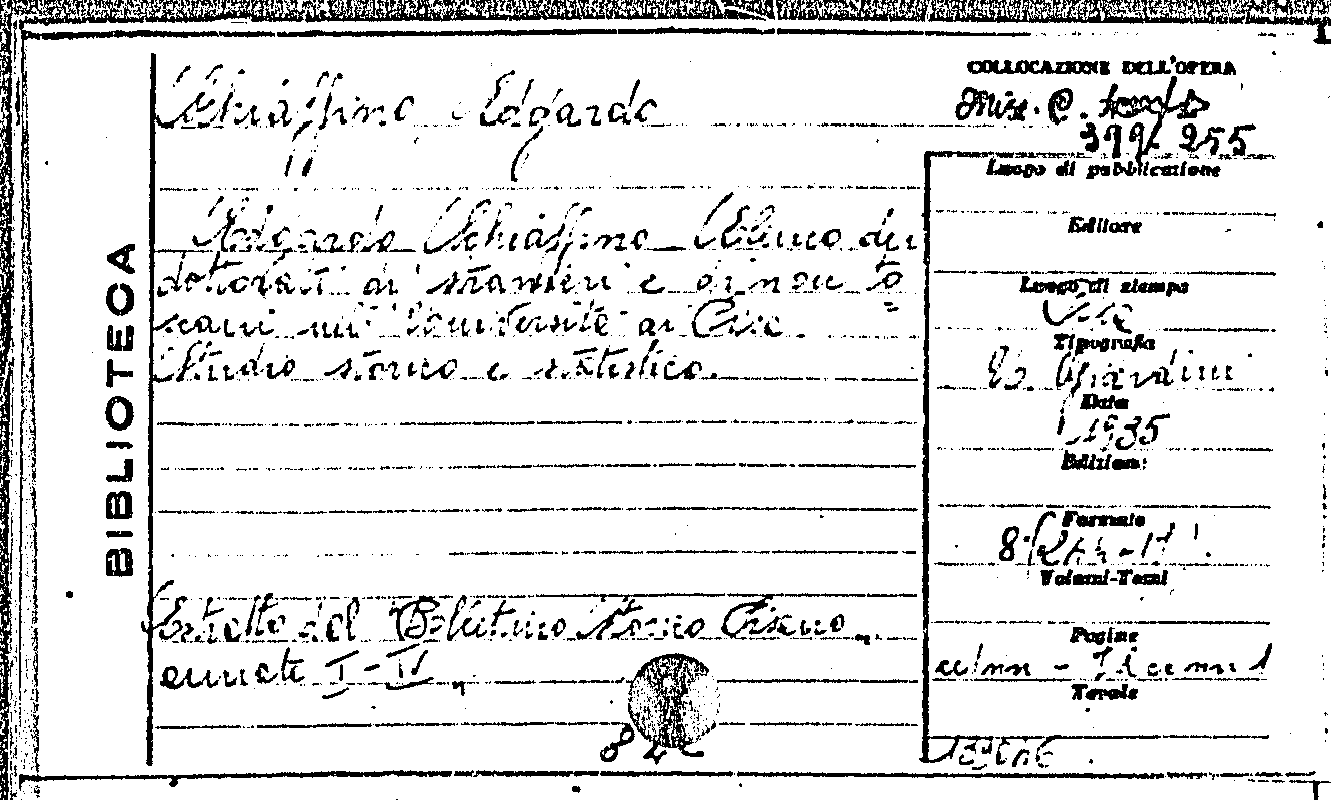 BIBLIOTECA
Schiaffino Edgardo
Edgardo Schiaffino Elenco dei
dottorati di stranieri e di non to
scani nell' Università di Pisa.
Studio storico e statistico.
Estratto dal "Bollettino Storico Pisano„
annate I-IV„
84
COLLOCAZIONE DELL'OPERA
Misc. C.
399. 255
Luogo di pubblicazione
Editore
Luogo di stampa
Pisa
Tipografia
E. Giardini
Data
1935
Edizione
Formato
8°
Volumi-Tomi
Pagine
Tavole